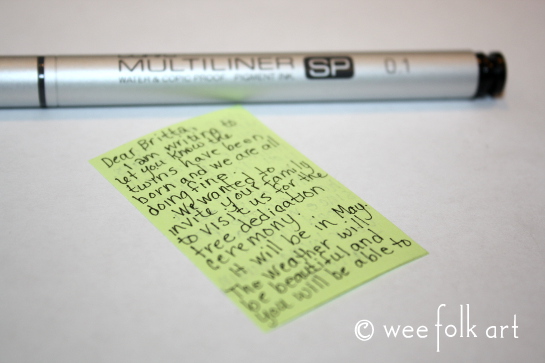 MULTILINER SP 0.1
WATER & COPIC PROOF PIGMENT INK
Dear Britta,
I am writing to
let you know the
twins have been
born and we are all
doing fine.
We wanted to
invite your family
to visit us for the
tree dedication
ceremony.
It will be in May.
The weather will
be beautiful and
you will be able to
© wee folk art